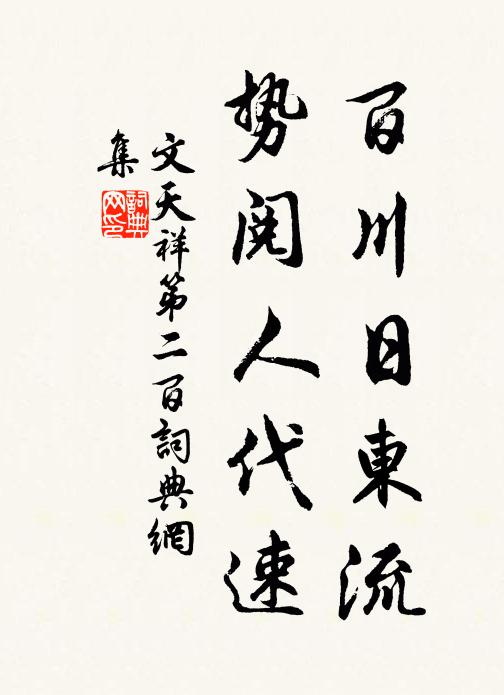 百川日東流
势阅人代速
文天祥第二百詞典網
集
詞典
网印